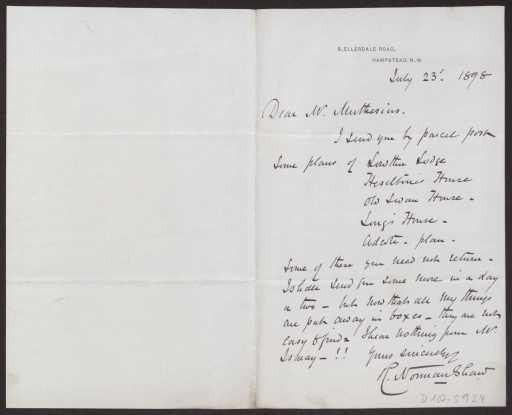 6, ELLERDALE ROAD,
HAMPSTEAD. N.W.
July 23d. 1898
Dear Mr. Muthesius.
I send you by parcel post
some plans of Lowther Lodge
Heseltine's House
Old Swan House -
Long's House -
Adcote - plan -
Some of these you need not return -
I shall send you some more in a day
or two - but now that all my things
are put away in boxes - they are not
easy to find - I hear nothing from Mr.
May - !! Yours sincerely
R. Norman Shaw
D 102-5924